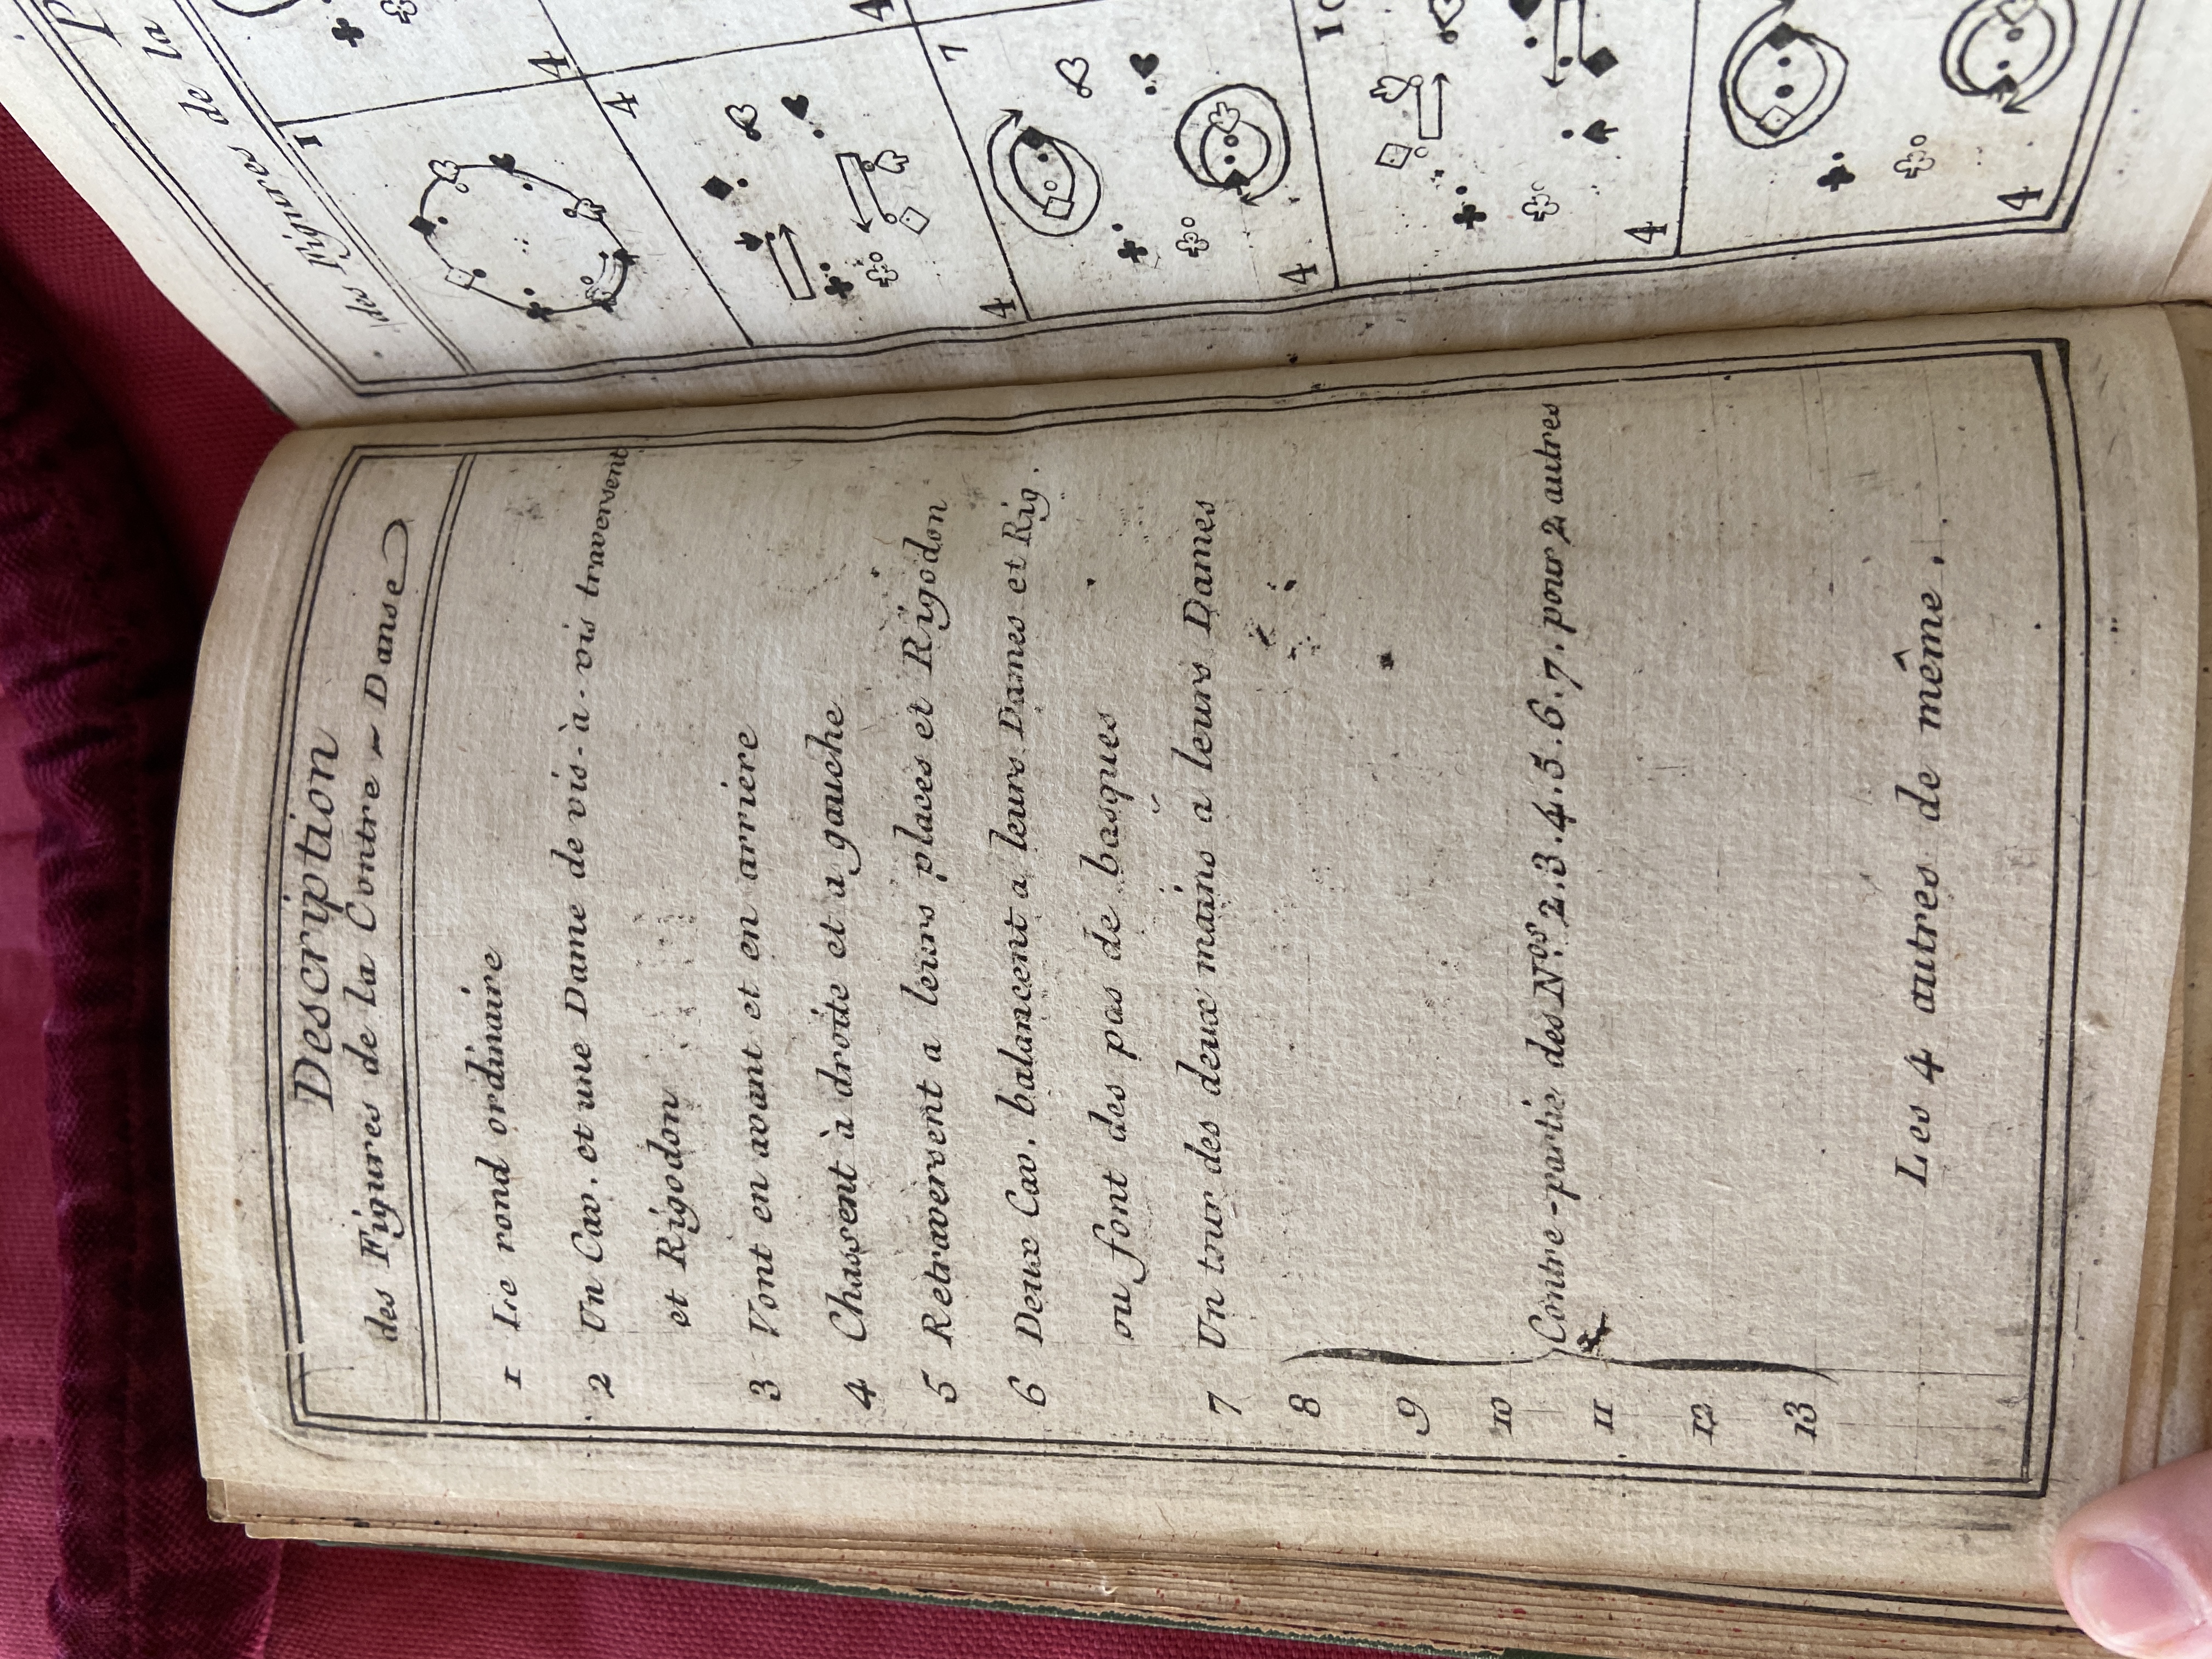 Description
des Figures de la Contre ~ Danse
1 Le rond ordinaire
2 Un Cav. et une Dame de vis-à-vis traversent
et Rigodon
3 Vont en avant et en arriere
4 Chassent à droite et a gauche
5 Retraversent a leurs places et Rigodon
6 Deux Cav. balancent a leurs Dames et Rig.
ou font des pas de basques
7 Un tour des deux mains a leurs Dames
8
9
10
Contre-partie des Nos. 2.3.4.5.6.7. pour 2 autres
11
12
13
Les 4 autres de même.
des Figures de la
1
4
4
4
4
7
4
10
4
4